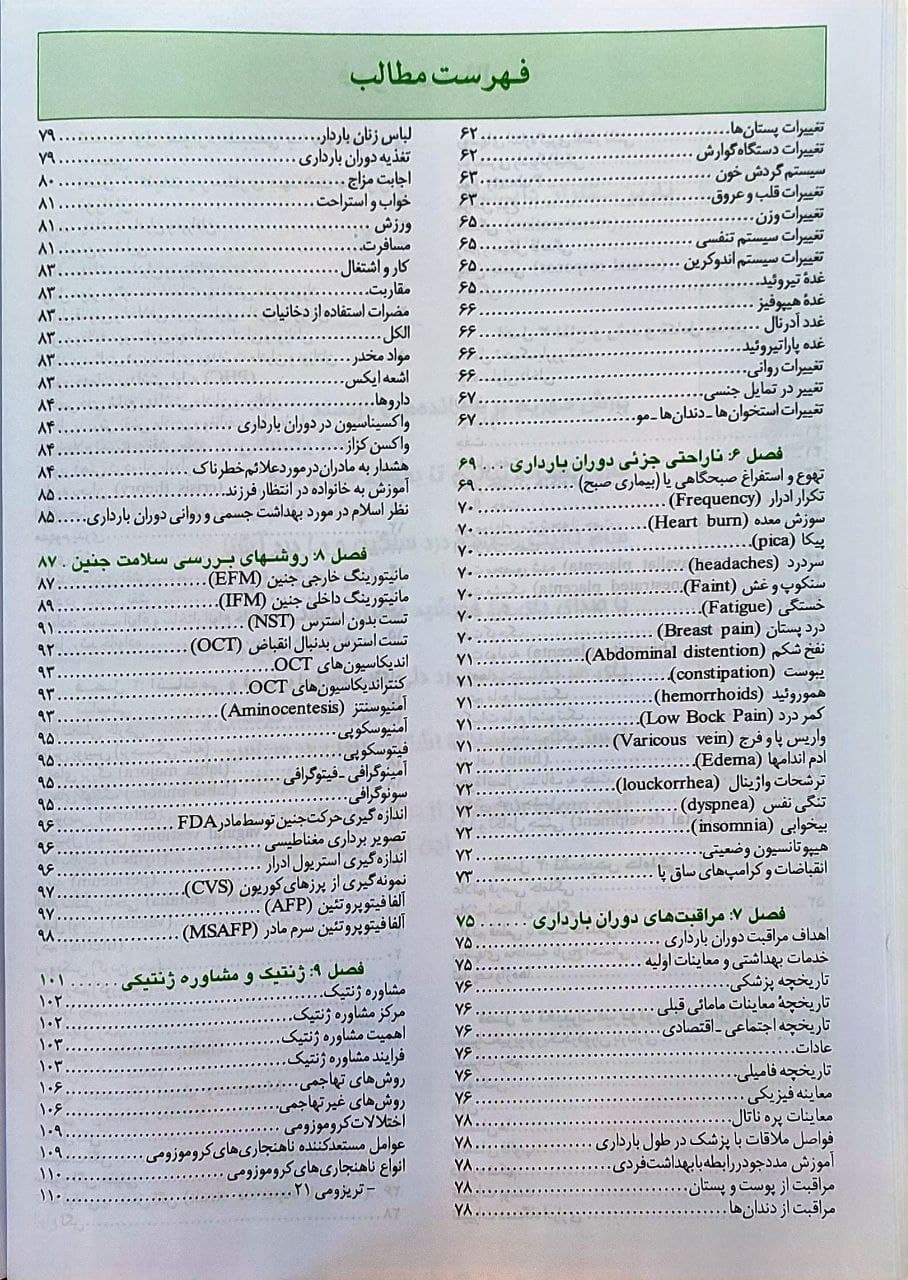 فهرست مطالب
تغییرات پستان‌ها ۶۲
تغییرات دستگاه گوارش ۶۲
سیستم گردش خون ۶۳
تغییرات قلب و عروق ۶۳
تغییرات وزن ۶۵
تغییرات سیستم تنفسی ۶۵
تغییرات سیستم اندوکرین ۶۵
غدهٔ تیروئید ۶۵
غدهٔ هیپوفیز ۶۶
غدد آدرنال ۶۶
غده پاراتیروئید ۶۶
تغییرات روانی ۶۶
تغییر در تمایل جنسی ۶۷
تغییرات استخوان‌ها ـ دندان‌ها ـ مو ۶۷
فصل ۶: ناراحتی جزئی دوران بارداری ۶۹
تهوع و استفراغ صبحگاهی یا (بیماری صبح) ۶۹
تکرار ادرار (Frequency) ۷۰
سوزش معده (Heart burn) ۷۰
پیکا (pica) ۷۰
سردرد (headaches) ۷۰
سنکوپ و غش (Faint) ۷۰
خستگی (Fatigue) ۷۰
درد پستان (Breast pain) ۷۰
نفخ شکم (Abdominal distention) ۷۱
یبوست (constipation) ۷۱
هموروئید (hemorrhoids) ۷۱
کمر درد (Low Bock Pain) ۷۱
واریس پا و فرج (Varicous vein) ۷۱
ادم اندامها (Edema) ۷۲
ترشحات واژینال (louckorrhea) ۷۲
تنگی نفس (dyspnea) ۷۲
بیخوابی (insomnia) ۷۲
هیپوتانسیون وضعیتی ۷۲
انقباضات و کرامپ‌های ساق پا ۷۳
فصل ۷: مراقبت‌های دوران بارداری ۷۵
اهداف مراقبت دوران بارداری ۷۵
خدمات بهداشتی و معاینات اولیه ۷۵
تاریخچه پزشکی ۷۶
تاریخچهٔ معاینات مامائی قبلی ۷۶
تاریخچه اجتماعی ـ اقتصادی ۷۶
عادات ۷۶
تاریخچه فامیلی ۷۶
معاینه فیزیکی ۷۶
معاینات پره ناتال ۷۸
فواصل ملاقات با پزشک در طول بارداری ۷۸
آموزش مددجو در رابطه با بهداشت فردی ۷۸
مراقبت از پوست و پستان ۷۸
مراقبت از دندان‌ها ۷۸
لباس زنان باردار ۷۹
تغذیه دوران بارداری ۷۹
اجابت مزاج ۸۰
خواب و استراحت ۸۱
ورزش ۸۱
مسافرت ۸۱
کار و اشتغال ۸۳
مقاربت ۸۳
مضرات استفاده از دخانیات ۸۳
الکل ۸۳
مواد مخدر ۸۳
اشعه ایکس ۸۳
داروها ۸۴
واکسیناسیون در دوران بارداری ۸۴
واکسن کزاز ۸۴
هشدار به مادران در مورد علائم خطرناک ۸۴
آموزش به خانواده در انتظار فرزند ۸۵
نظر اسلام در مورد بهداشت جسمی و روانی دوران بارداری ۸۵
فصل ۸: روشهای بررسی سلامت جنین ۸۷
مانیتورینگ خارجی جنین (EFM) ۸۷
مانیتورینگ داخلی جنین (IFM) ۸۹
تست بدون استرس (NST) ۹۱
تست استرس بدنبال انقباض (OCT) ۹۲
اندیکاسیون‌های OCT ۹۳
کنتراندیکاسیون‌های OCT ۹۳
آمنیوسنتز (Aminocentesis) ۹۳
آمنیوسکوپی ۹۵
فیتوسکوپی ۹۵
آمینوگرافی ـ فیتوگرافی ۹۵
سونوگرافی ۹۵
اندازه‌گیری حرکت جنین توسط مادر FDA ۹۶
تصویر برداری مغناطیسی ۹۶
اندازه‌گیری استریول ادرار ۹۶
نمونه‌گیری از پرزهای کوریون (CVS) ۹۷
آلفا فیتو پروتئین (AFP) ۹۷
آلفا فیتو پروتئین سرم مادر (MSAFP) ۹۸
فصل ۹: ژنتیک و مشاوره ژنتیکی ۱۰۱
مشاوره ژنتیک ۱۰۲
مرکز مشاوره ژنتیک ۱۰۲
اهمیت مشاوره ژنتیک ۱۰۳
فرایند مشاوره ژنتیک ۱۰۳
روش‌های تهاجمی ۱۰۶
روش‌های غیر تهاجمی ۱۰۶
اختلالات کروموزومی ۱۰۹
عوامل مستعدکننده ناهنجاری‌های کروموزومی ۱۰۹
انواع ناهنجاری‌های کروموزومی ۱۱۰
- تریزومی ۲۱ ۱۱۰